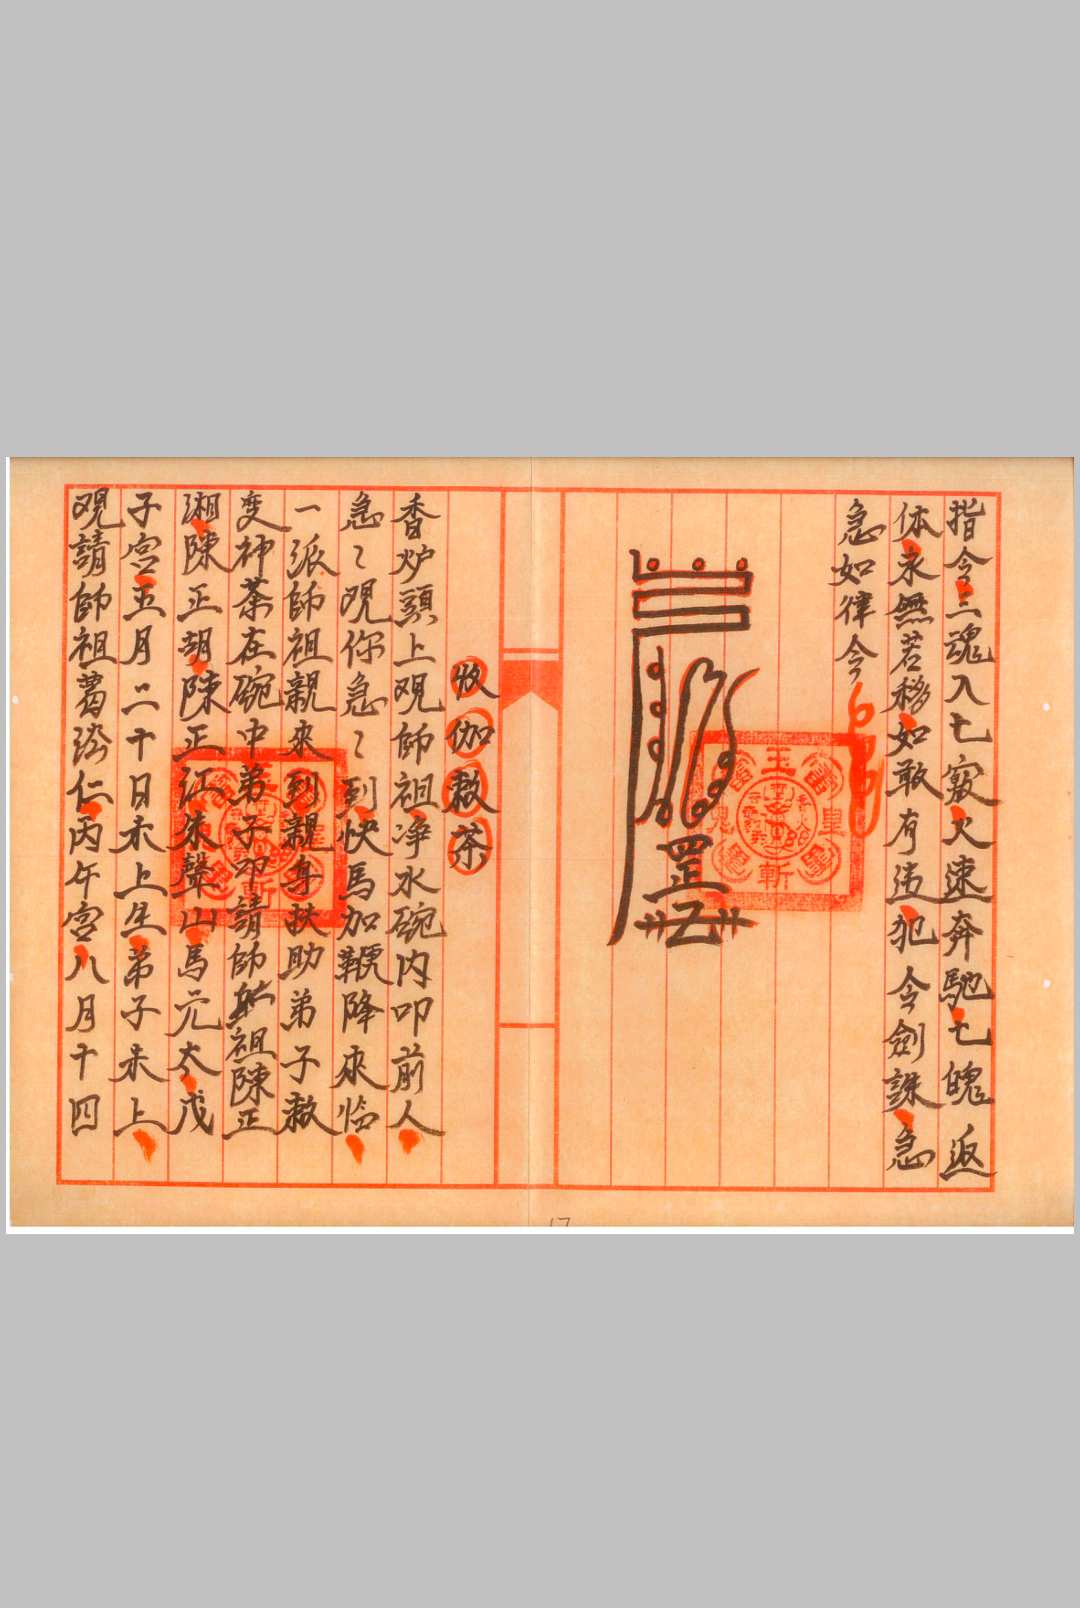 指令三魂入七竅火速奔馳七魄返
体永無若移如敢有违犯令劍誅急
急如律令
罡
收伽敕茶
香炉頭上覌師祖净水碗内叩前人
急〻覌你急〻到快馬加鞭降来临
一派師祖親来到親身扶助弟子敕
变神茶在碗中弟子叩請師祖陳正
湘陳正胡陳正江朱聲山馬元太戊
子宫五月二十日未上生弟子未上
覌請師祖葛 仁丙午宫八月十四
17